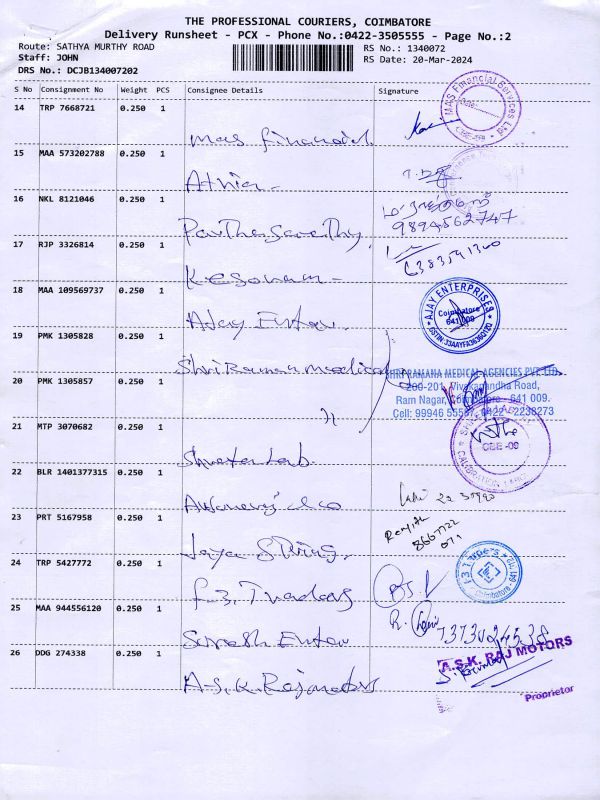 THE PROFESSIONAL COURIERS, COIMBATORE
Delivery Runsheet - PCX - Phone No.:0422-3505555 - Page No.:2
Route: SATHYA MURTHY ROAD RS No.: 1340072
Staff: JOHN RS Date: 20-Mar-2024
DRS No.: DCJB134007202
S No Consignment No Weight PCS Consignee Details Signature
14 TRP 7668721 0.250 1
mas financial
MAS Financial Services Ltd
15 MAA 573202788 0.250 1
Athia
16 NKL 8121046 0.250 1
Parthasarathy
9894562747
17 RJP 3326814 0.250 1
Kesavan
18 MAA 109569737 0.250 1
Ajay Enter
AJAY ENTERPRISES
Coimbatore
641 009
19 PMK 1305828 0.250 1
Shri Ramana medical
SHRI RAMANA MEDICAL AGENCIES PVT LTD
200-201, Vivekanandha Road,
Ram Nagar, Coimbatore - 641 009.
20 PMK 1305857 0.250 1
21 MTP 3070682 0.250 1
CBE -09
CALIBRATION
22 BLR 1401377315 0.250 1
23 PRT 5167958 0.250 1
Ranjith
Jaya String
24 TRP 5427772 0.250 1
f3 Traders
Coimbatore
25 MAA 944556120 0.250 1
Suresh Enter
26 DDG 274338 0.250 1
A.S.K. Raj motors
A.S.K. RAJ MOTORS
Proprietor